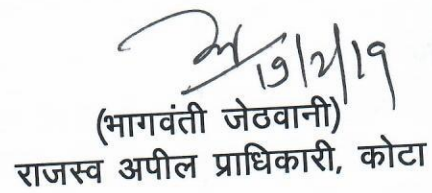 19/2/19
(भागवंती जेठवानी)
राजस्व अपील प्राधिकारी, कोटा